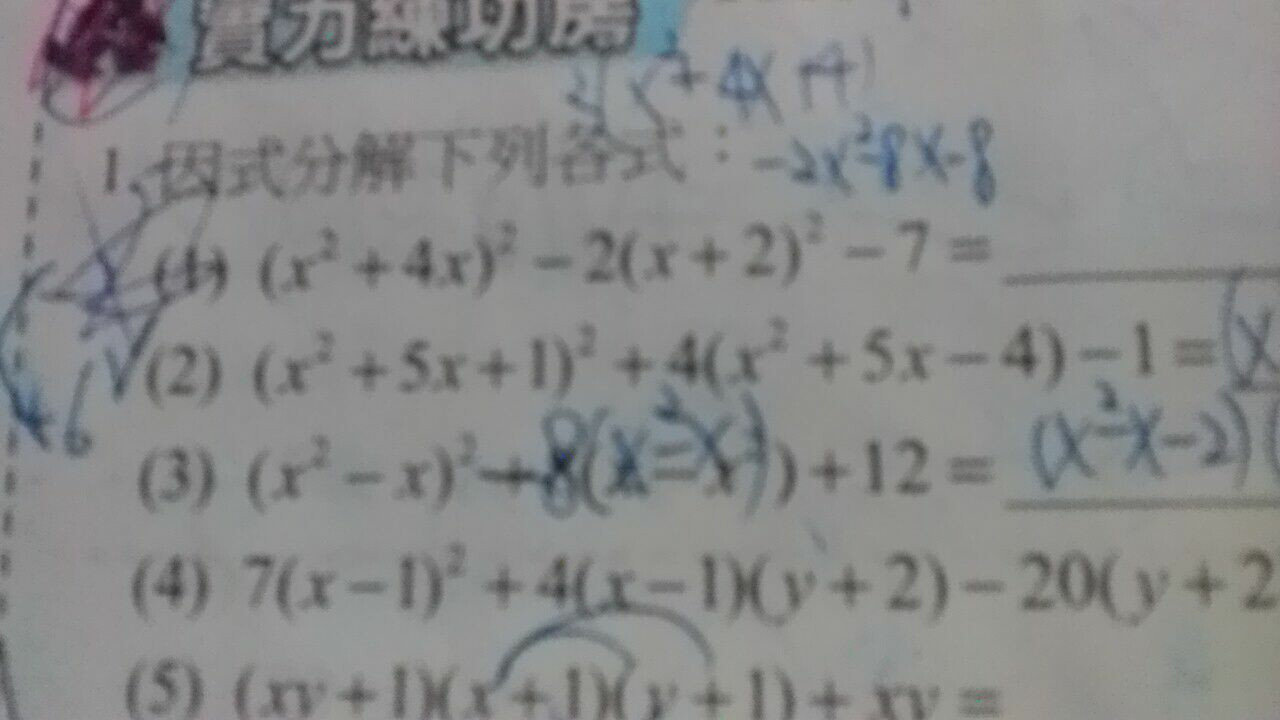 實力練功房
2(x²+4x+4)
1. 因式分解下列各式：-2x²-8x-8
(1) (x²+4x)²-2(x+2)²-7=
(2) (x²+5x+1)²+4(x²+5x-4)-1=(x
+6
(3) (x²-x)²+8(x²-x))+12= (x²-x-2)(
(4) 7(x-1)²+4(x-1)(y+2)-20(y+2
(5) (xy+1)(x+1)(y+1)+xy=